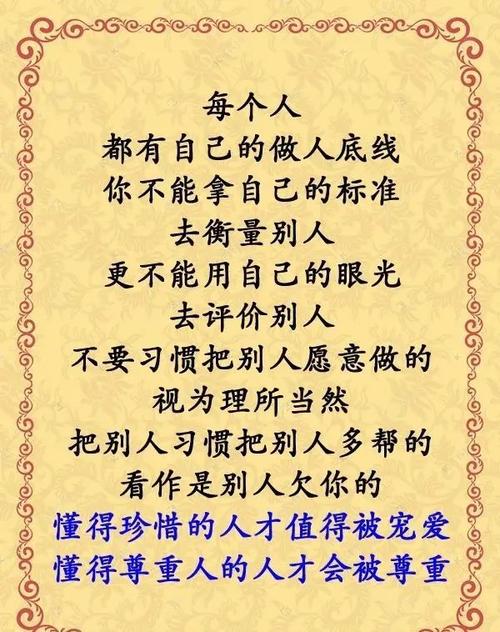 每个人
都有自己的做人底线
你不能拿自己的标准
去衡量别人
更不能用自己的眼光
去评价别人
不要习惯把别人愿意做的
视为理所当然
把别人习惯把别人多帮的
看作是别人欠你的
懂得珍惜的人才值得被宠爱
懂得尊重人的人才会被尊重